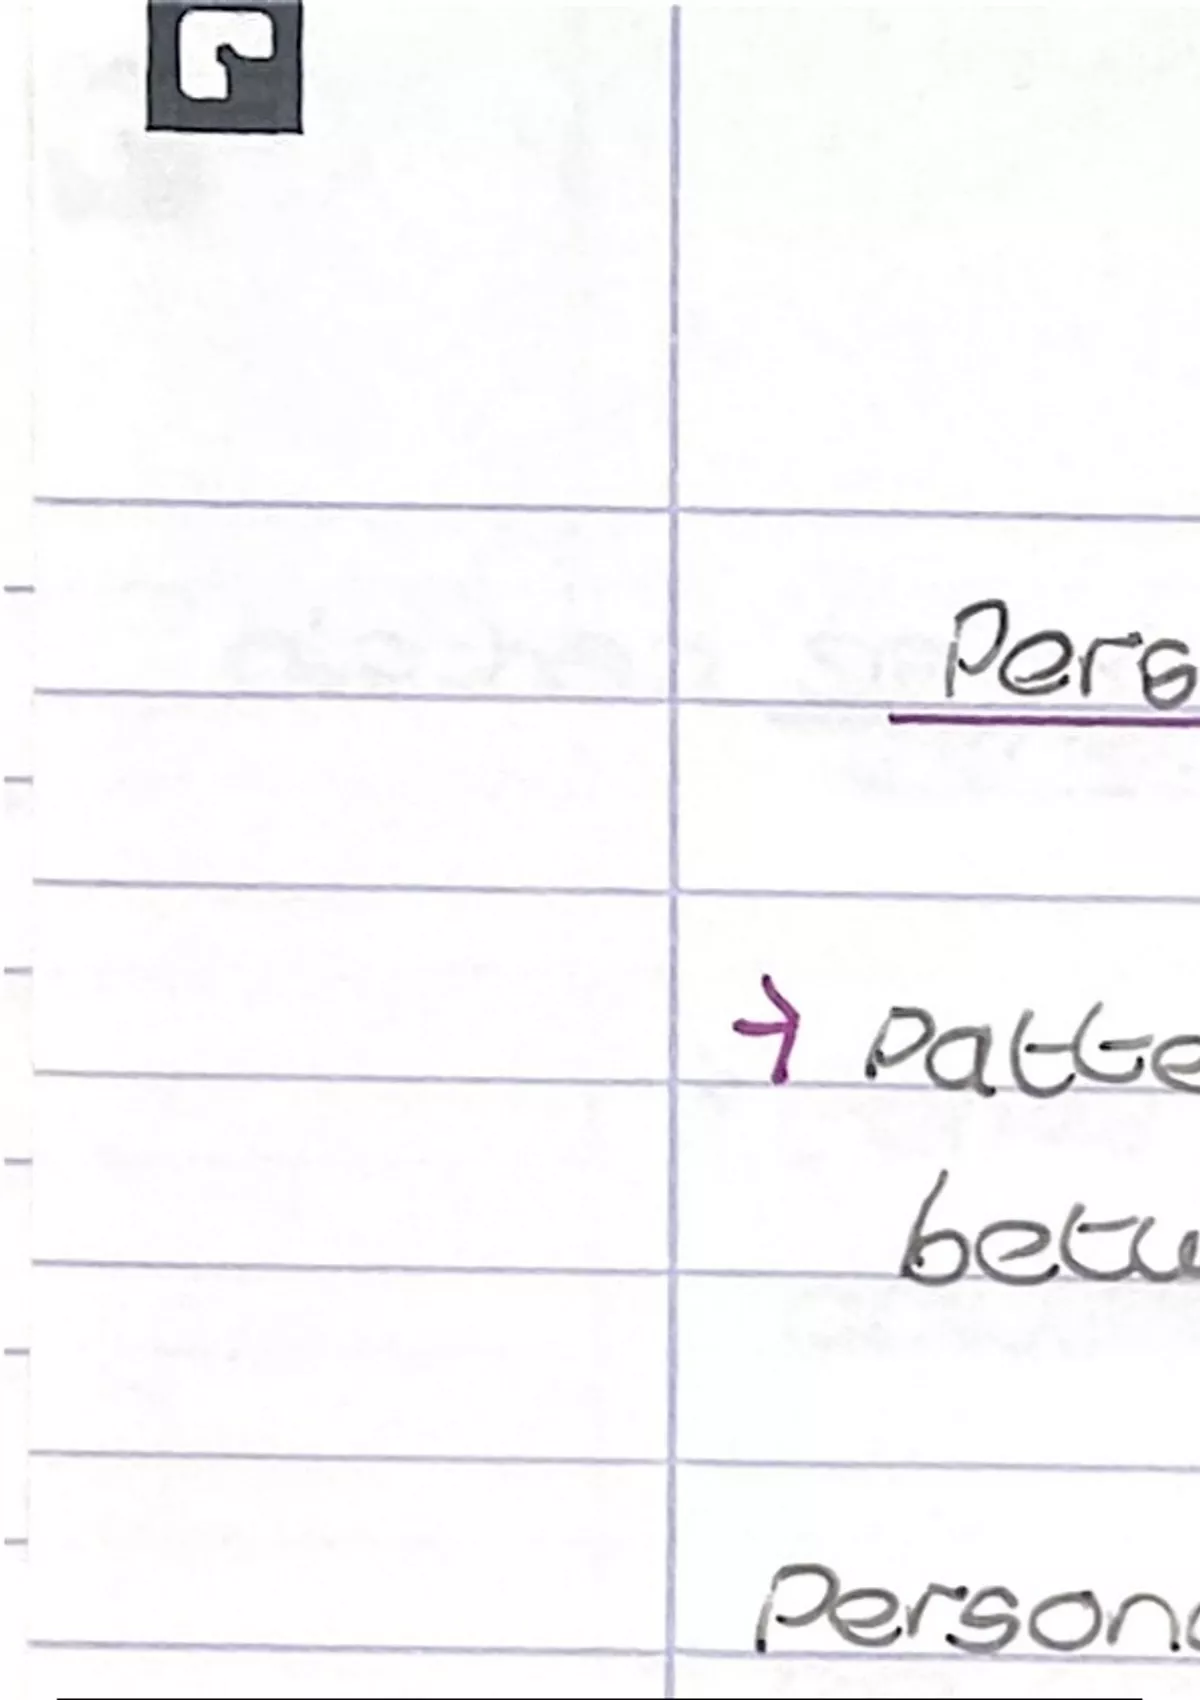 Pers
→ patte
betw
Persona